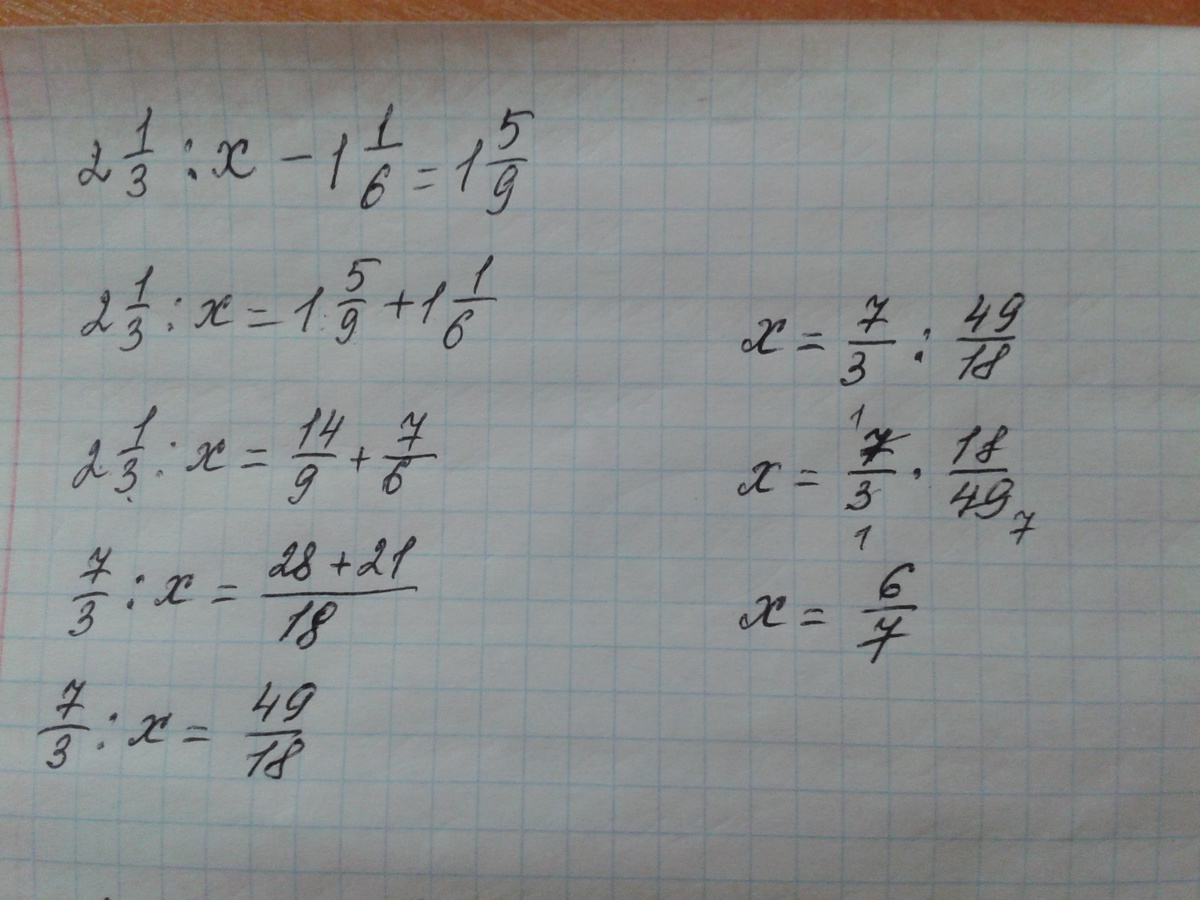 2 1/3 : x − 1 1/6 = 1 5/9
2 1/3 : x = 1 5/9 + 1 1/6
2 1/3 : x = 14/9 + 7/6
7/3 : x = (28 + 21)/18
7/3 : x = 49/18
x = 7/3 : 49/18
1
x = 7/3 · 18/49 7
1
x = 6/7